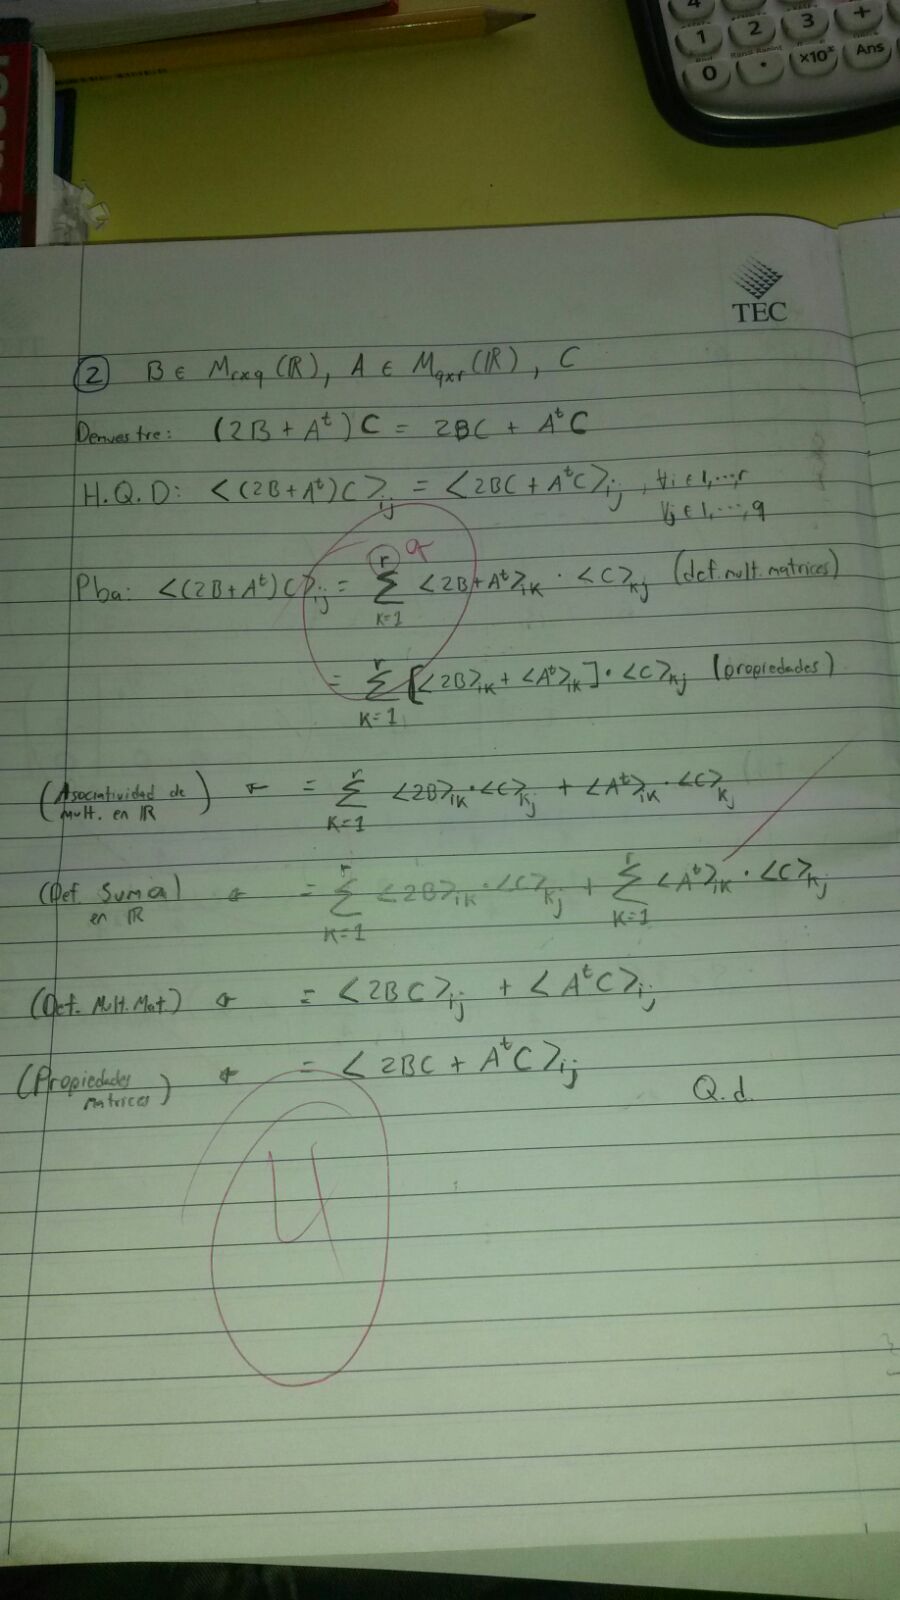 4
1 2 3 +
0 . ×10ˣ Ans
TEC
② B ∈ M_rxq (ℝ), A ∈ M_qxr (ℝ), C
Demuestre: (2B + A^t) C = 2BC + A^t C
H.Q.D: <(2B+A^t)C>_ij = <2BC + A^t C>_ij, ∀i ∈ 1,...,r
∀j ∈ 1,...,q
q
Pba: <(2B+A^t)C>_ij = Σ_{K=1}^{r} <2B+A^t>_iK · <C>_Kj (def. mult. matrices)
= Σ_{K=1}^{r} [<2B>_iK + <A^t>_iK] · <C>_Kj (propiedades)
(Asociatividad de Mult. en ℝ) = Σ_{K=1}^{r} <2B>_iK · <C>_Kj + <A^t>_iK · <C>_Kj
(Def. Suma en ℝ) = Σ_{K=1}^{r} <2B>_iK · <C>_Kj + Σ_{K=1}^{r} <A^t>_iK · <C>_Kj
(Def. Mult. Mat.) = <2BC>_ij + <A^t C>_ij
(Propiedades Matrices) = <2BC + A^t C>_ij
Q.d.
4